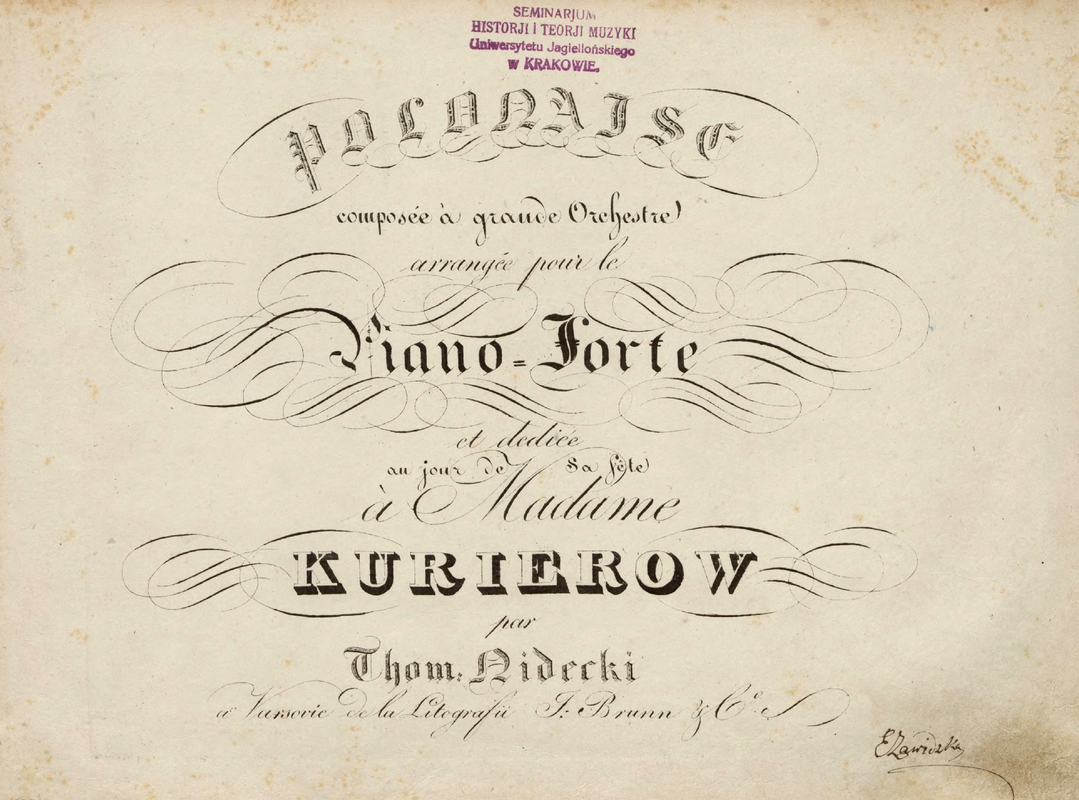 SEMINARJUM
HISTORJI i TEORJI MUZYKI
Uniwersytetu Jagiellońskiego
w KRAKOWIE.
POLONAISE
composée à grande Orchestre
arrangée pour le
Piano=Forte
et dediée
au jour de sa fête
à Madame
KURIEROW
par
Thom: Nidecki
a Varsovie de la Litografii J: Brunn & Ce
EZawidzka